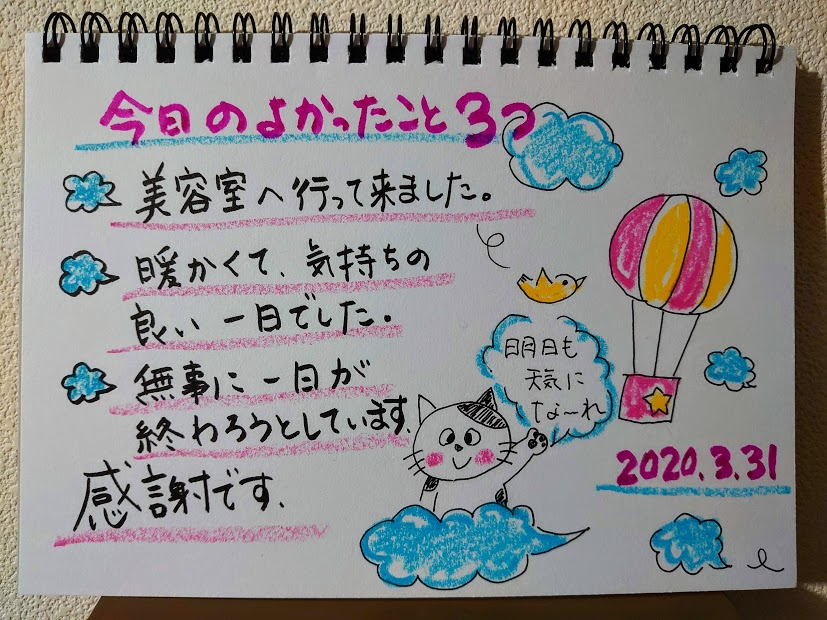 今日のよかったこと3つ
美容室へ行って来ました。
暖かくて、気持ちの
良い一日でした。
無事に一日が
終わろうとしています。
感謝です。
明日も
天気に
な〜れ
2020.3.31